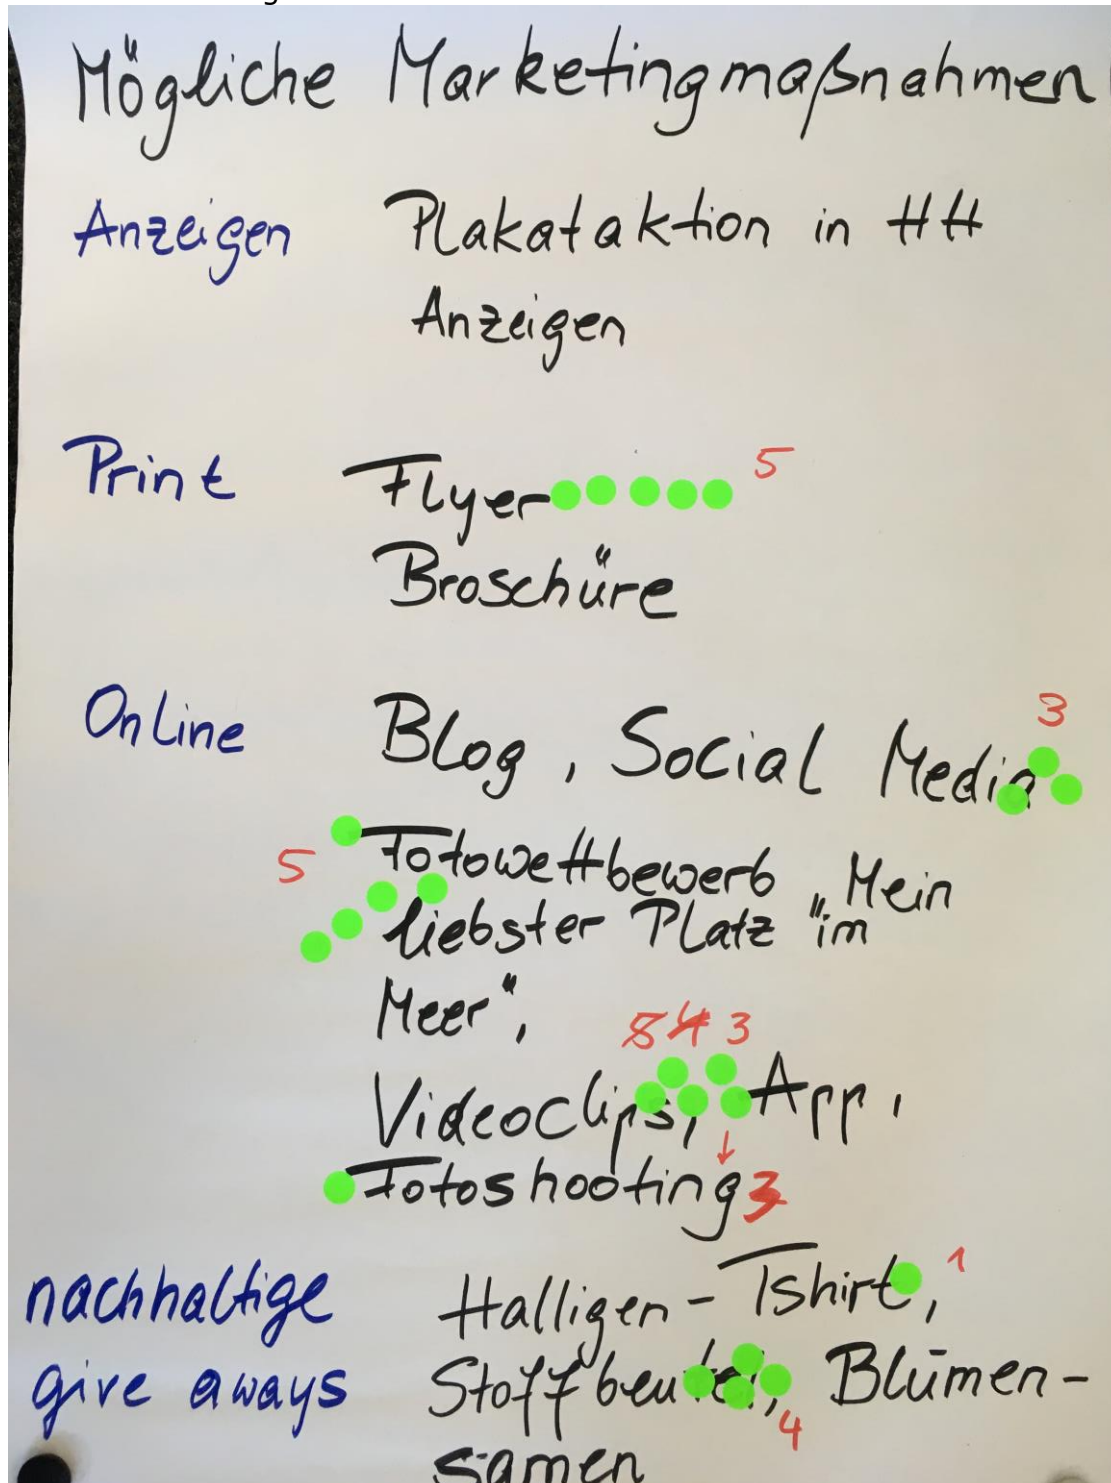 Mögliche Marketingmaßnahmen
Anzeigen Plakataktion in HH
Anzeigen
Print Flyer 5
Broschüre
Online Blog, Social Media 3
5 Fotowettbewerb „Mein
liebster Platz "im
Meer",
5 4 3
Videoclips, App,
Fotoshooting 3
nachhaltige Halligen-Tshirt, 1
give aways Stoffbeutel, Blumen-
4
samen